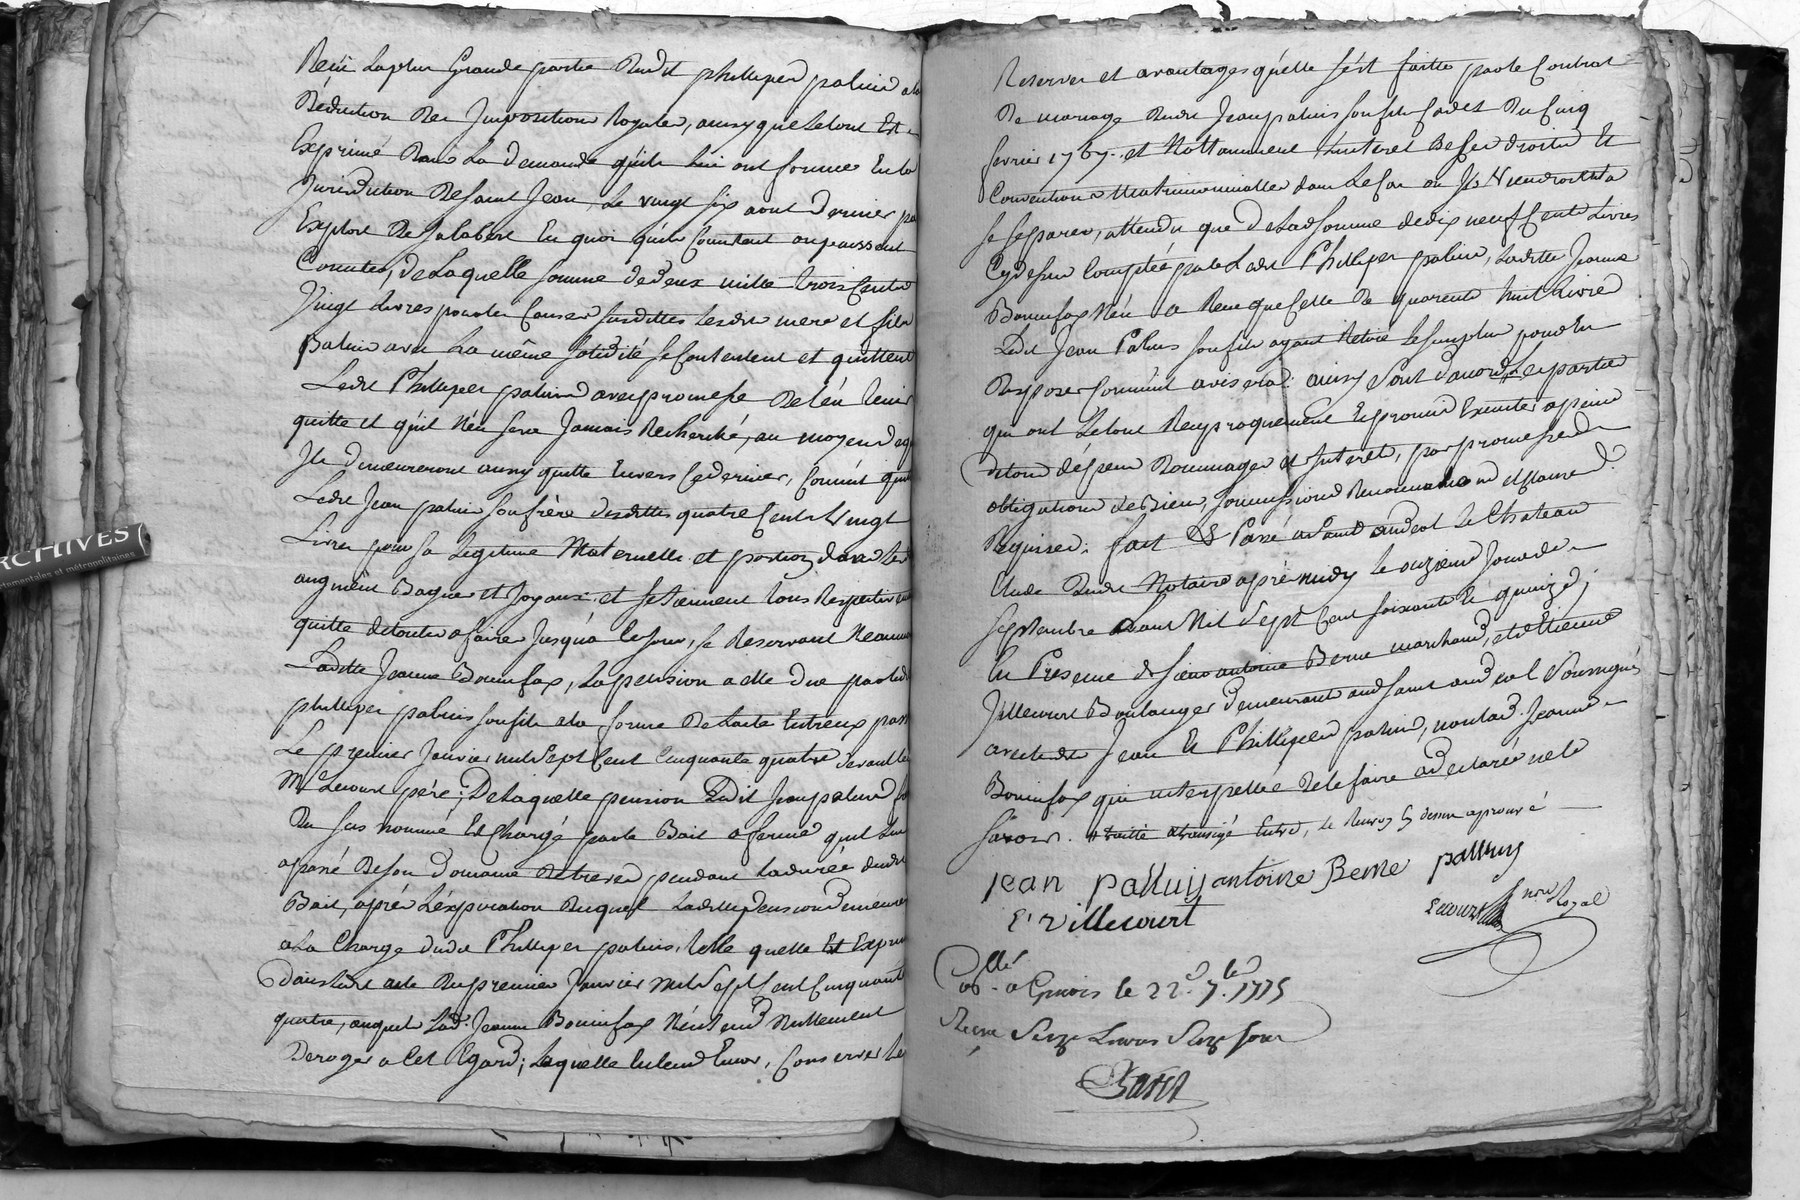 Reçu la plus Grande partie dudit phillipes palluis a la
Déduction des Impositions Royales, ainsy que le tout Est
Exprimé dans la demande qu'ils lui ont formée En la
Juridiction de saint Jean, le vingt six aout dernier par
Exploit de Jalabert En quoi qu'elle Consistent ou puissent
Consister, de Laquelle somme de deux mille trois Cents
Vingt Livres pour les Causes susdittes lesdits mere et fils
palluis avec La même solidité se Contentent et quittent
Ledit Phillipes palluis avec promesse de l'en tenir
quitte et qu'il n'en sera Jamais Recherché, au moyen de quoi
Ils demeureront aussy quitte Envers Ce dernier, Comme
Ledit Jean palluis son frère desdittes quatre Cents Vingt
Livres pour sa Legitime Maternelle et portion dans les
augment Bagues et Joyaux et se tiennent tous Respectivement
quitte de toutes afaires Jusqu'a Ce Jour, se Reservant Neanmoins
Laditte Jeanne Bonnifax, La pension a elle due par ledit
phillipes palluis son fils a la forme de L'acte Entreux passé
Le premier Janvier mil sept Cent Cinquante quatre devant
Me Lecourt père; De Laquelle pension Ledit Jean palluis
du sus nommé Est Chargé par le Bail a ferme qu'il lui
a passé de son Domaine de pendant la durée dudit
Bail, après L'éxpiration duquel Laditte pension demeurera
a La Charge dudit Phillipes palluis, telle quelle Est Exprimée
Dans ledit acte du premier Janvier mil sept Cent Cinquante
quatre, auquel Lad. Jeanne Bonnifax N'entend Nullement
Deroger a Cet Egard; Laquelle Entend Encor, Conserver les
Reserves et avantages qu'elle s'est faitte par le Contrat
De mariage dudit Jean palluis son fils Cadet du Cinq
fevrier 1767. et Nottamment L'interet de ses droits Et
Conventions Matrimonialles dans Le Cas ou Ils Viendroient a
se separer, attendu que de Lad. somme de dix neuf Cents Livres
Cy dessus Comptée par Ledit Phillipes palluis, Laditte Jeanne
Bonnifax N'en a Reçu que Celle de quarente huit Livres
Ledit Jean Palluis son fils ayant Retiré Le surplus pour En
Disposer Comme il avisera. ainsy sont d'accord # les parties
qui ont Le tout Reciproquement Et promis Executer a peine
de tous dépens Dommages et Interet, par promesses
obligation de Biens, soumissions Renonciations et Clauses
Requises. fait & Passé a saint andeol le Chateau
Etude dudit Notaire après midy le onzieme Jour de
septembre Mil Sept Cent soixante Et quinze;
En Présence de sieur antoine Berne marchand, et d'Etienne
Villecourt Boulanger demeurants aud. saint andeol soussignés
avec lesdits Jean Et Phillipes palluis, non lad. Jeanne
Bonnifax qui interpellée de le faire a declaré ne le
savoir. # traitté & transigé Entre, le Renvoy cy dessus aprouvé
jean palluy antoine Berne palluy
E. villecourt Lecourt nre Royal
Collé
Con. a Givors le 22. 7bre. 1775
Recu Seize Livres Seize sous